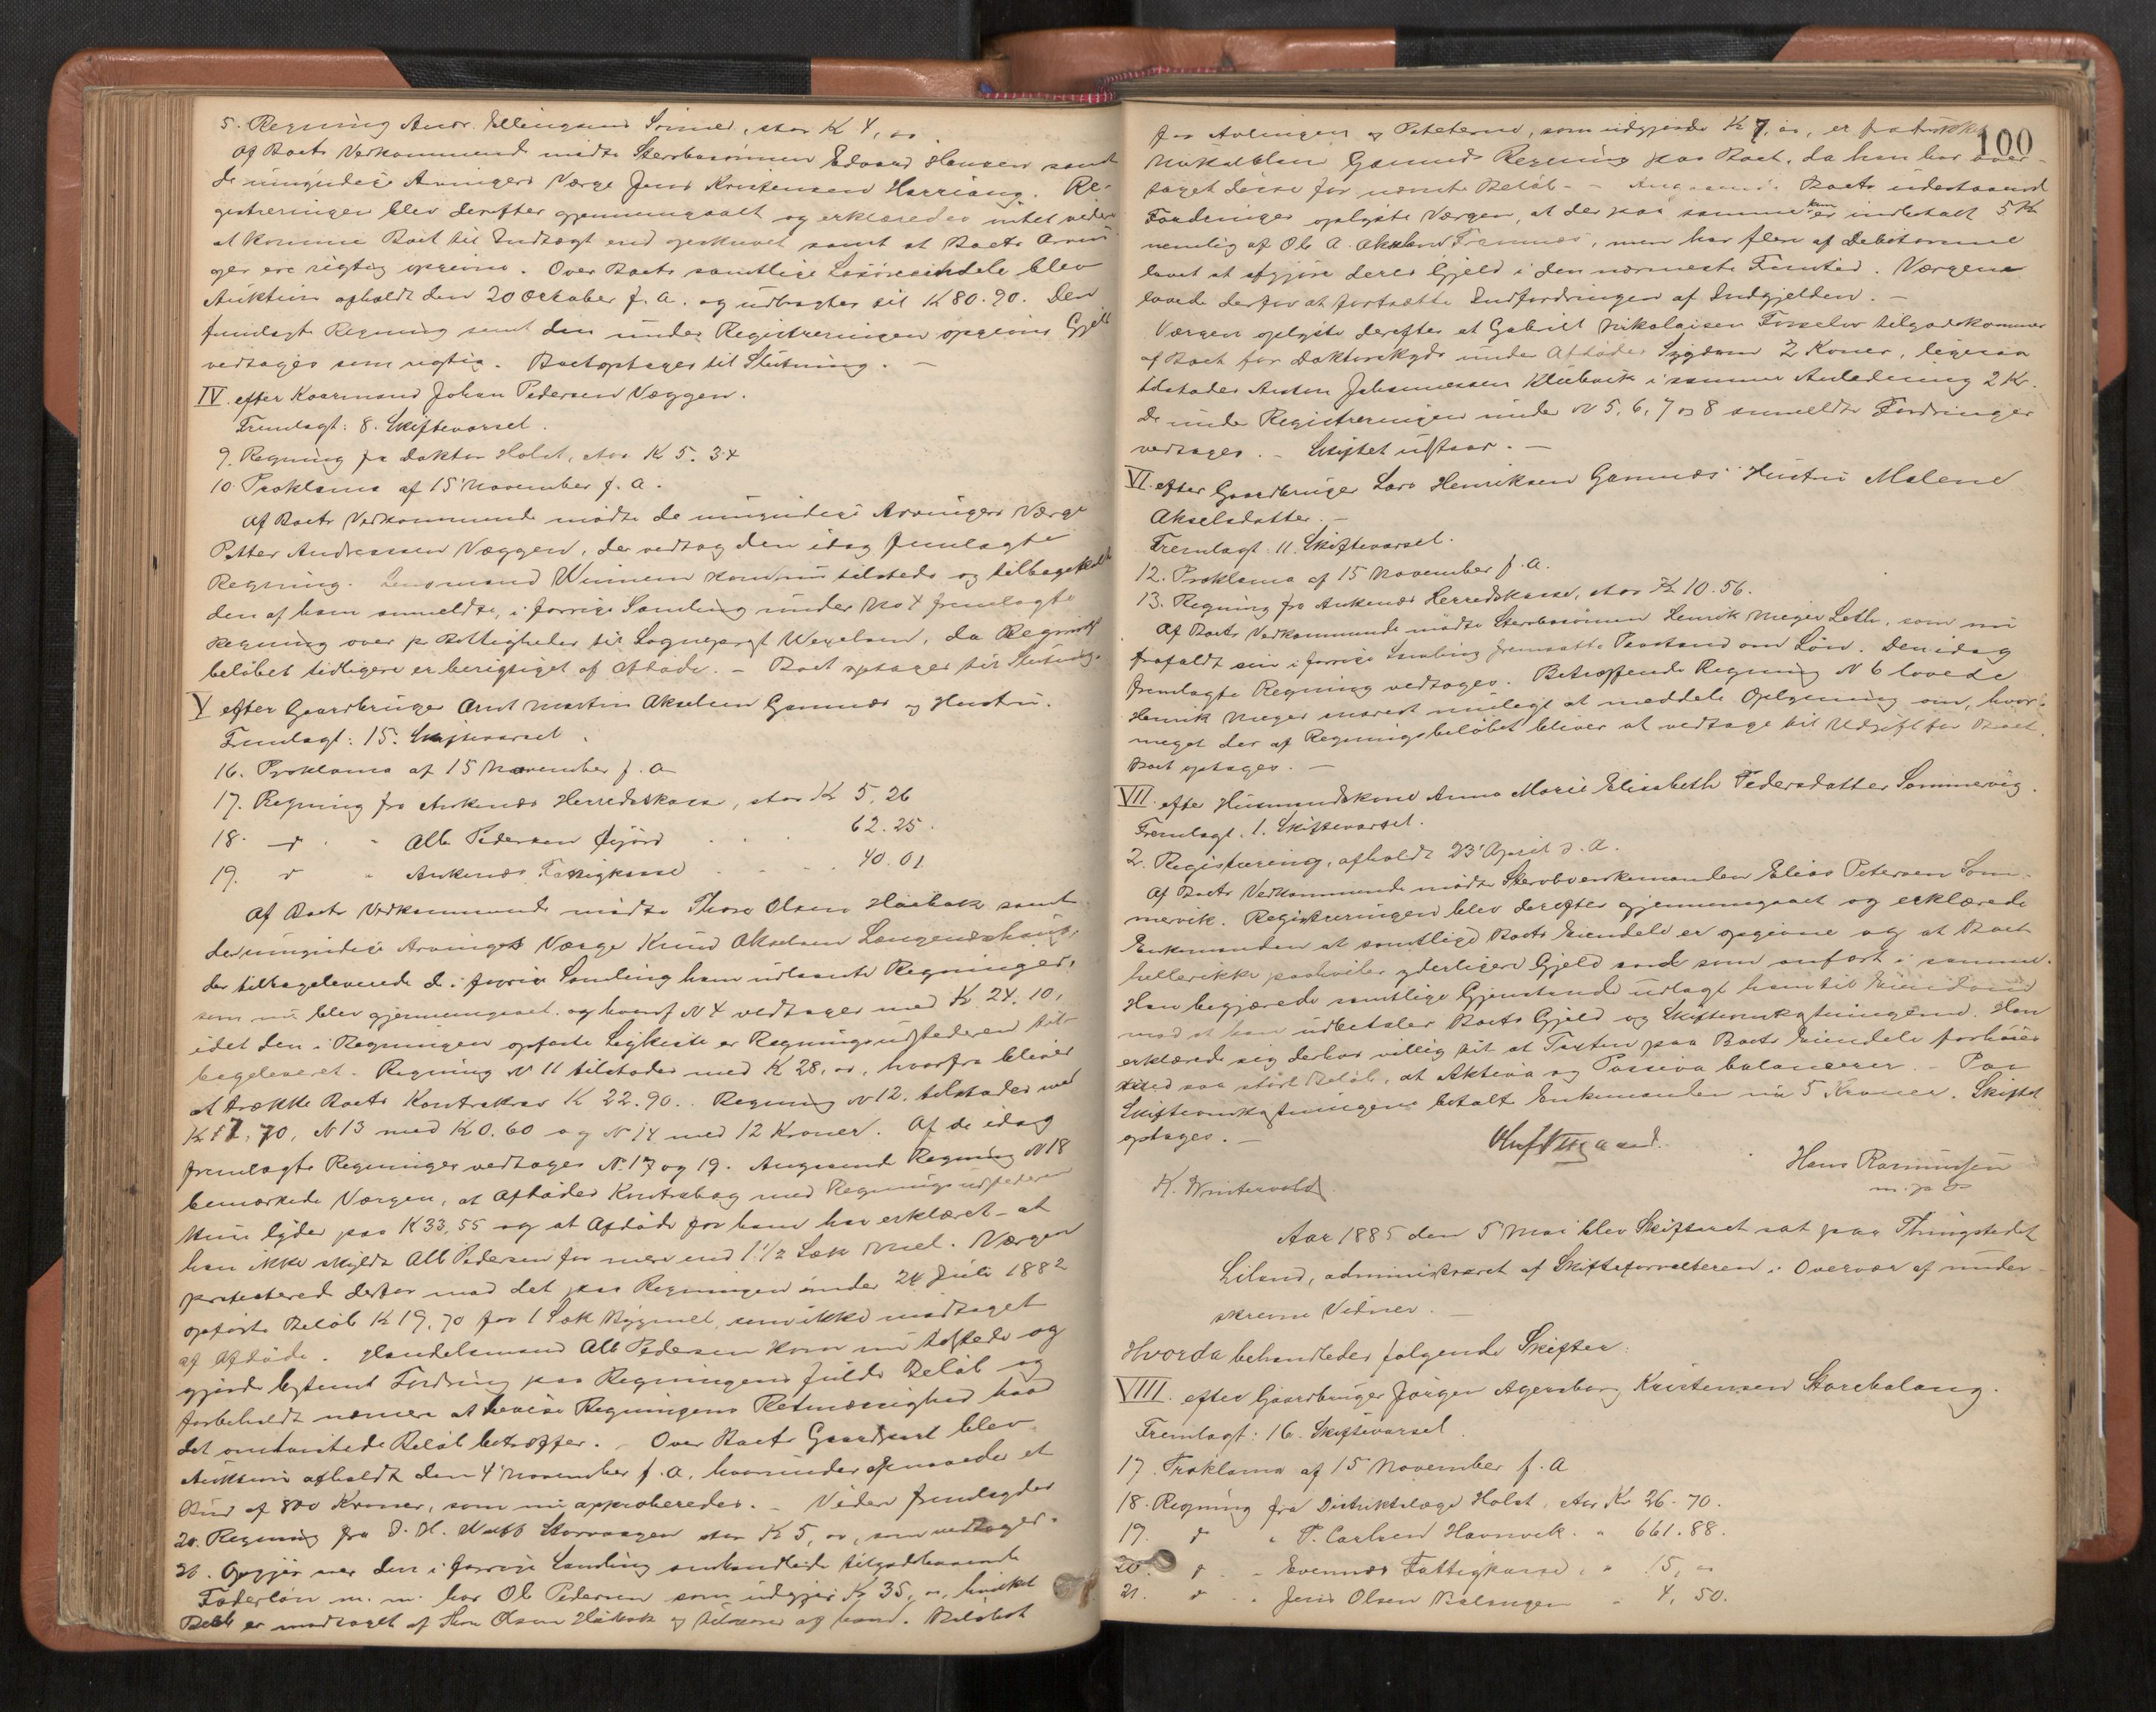 5. Regning Andr. Ellingsens Sønner, stor K 4,00
Af Boets Vedkommende mødte Stervbosønnen Edvard Hansen samt
de umyndige Arvingers Værge Jens Kristensen Herjang. Re-
gistreringen blev derefter gjennemgaaet og erklæredes intet videre
at komme Boet til Indtægt end opskrevet samt at Boets Arvin-
ger ere rigtig opgivne. Over Boets samtlige Løsøreeiendele blev
Auktion afholdt den 20 Oktober f. A. og udbragtes til K 80.90. Den
fremlagte Regning samt den under Registreringen opgivne Gjæld
vedtages som rigtig. Boet optages til Slutning. —
IV. efter Kaarmand Johan Pedersen Væggen.
Fremlagt: 8. Skiftevarsel.
9. Regning fra Doktor Holst, stor K 5.34
10. Proklama af 15 November f. A.
Af Boets Vedkommende mødte de umyndige Arvingers Værge
Petter Andreassen Væggen, der vedtog den idag fremlagte
Regning. Lensmand Winnem kom nu tilstede og tilbagekaldte
den af ham anmeldte, i forrige Samling under No 4 fremlagte
Regning over p. Rettigheder til Sogneprest Wegelsen, da Regnings-
beløbet tidligere er berigtiget af Afdøde. — Boet optages til Slutning.
V efter Gaardbruger Arnt Martin Akselsen Gamnes og Hustru.
Fremlagt: 15. Skiftevarsel.
16. Proklama af 15 November f. A
17. Regning fra Ankenes Herredskasse, stor K 5,26
18. do " Alb. Pedersen Øijord 62.25.
19. do " Ankenes Fattigkasse 40.01
Af Boets Vedkommende mødte Thore Olsen Haabak samt
de umyndige Arvingers Værge Knud Akselsen Længeneshaug,
der tilbageleverede de i forrige Samling ham udlaante Regninger,
som nu blev gjennemgaaet og hvoraf N 4 vedtages med K 24.10,
idet den i Regningen opførte Ligkiste er Regningsudstederen til-
bageleveret. Regning N 11 tilstodes med K 28,00, hvorfra bliver
at trække Boets Kontrakrav K 22.90. Regning N 12 tilstodes med
K 17,70, N 13 med K 0.60 og N 14 med 12 Kroner. Af de idag
fremlagte Regninger vedtages N. 17 og 19. Angaaende Regning N 18
bemærkede Værgen, at Afdødes Kontrabog med Regningsudstederen
kun lyder paa K 33,55 og at Afdøde for ham har erklæret at
han ikke skyldte Alb Pedersen for mere end 1 1/2 Sæk Mel. Værgen
protesterede derfor mod det paa Regningen under 24 Juli 1882
opførte Beløb K 19,70 for 1 Sæk Bygmel, som ikke modtaget
af Afdøde. Handelsmand Alb Pedersen kom nu tilstede og
gjorde bestemt Fordring paa Regningens fulde Beløb og
forbeholdt nærmere at bevise Regningens Retmæssighed hvad
det omtvistede Beløb betræffer. — Over Boets Gaardpart blev
Auktion afholdt den 4 November f. A. hvorunder opnaaedes et
Bud af 800 Kroner, som nu approberedes. — Videre fremlagdes
20. Regning fra J. H. Wulff Storvaagen stor K 5,00, som vedtages.
21. Opgjør over den i forrige Samling omhandlede tilgodehavende
Føderløn m. m. hos Ole Pedersen som udgjør K 35,00, hvilket
Beløb er modtaget af Thore Olsen Haabak og tilsvares af ham. Beløbet
100
for Avlingen og Poteterne, som udgjorde K 7,00, er fratrukket
Nikal Gamnes Regning paa Boet, da han har over-
taget disse for nævnte Beløb. — Angaaende Boets udestaaende
Fordringer oplyste Værgen, at der paa samme kun er indbetalt 5 K
nemlig af Ole A. Akselsen Framnes, men har flere af Debitorerne
lovet at afgjøre deres Gjæld i den nærmeste Fremtid. Værgen
lovede derfor at fortsætte Indfordringen af Indgjælden. —
Værgen oplyste derefter at Gabriel Nikolaisen Forselv tilgodekommer
af Boet for Doktorskyds under Afdødes Sygdom 2 Kroner, ligesaa
tilstodes Anton Johannessen Klubvik i samme Anledning 2 Kr.
De under Registreringen under N 5, 6, 7 og 8 anmeldte Fordringer
vedtages. — Skiftet udstaar. —
VI. efter Gaardbruger Lars Henriksen Gamnes' Hustru Malene
Akselsdatter. —
Fremlagt: 11. Skiftevarsel.
12. Proklama af 15 November f. A.
13. Regning fra Ankenes Herredskasse, stor K 10.56.
Af Boets Vedkommende mødte Stervbosønnen Henrik Meyer Leth, som nu
frafaldt sin i forrige Samling fremsatte Paastand om Løn. Den idag
fremlagte Regning vedtages. Betræffende Regning N 6 lovede
Henrik Meyer snarest muligt at meddele Oplysning om, hvor-
meget der af Regningsbeløbet bliver at vedtage til Udgift for Boet.
Boet optages. —
VII. efter Husmandskone Anna Marie Elisabeth Pedersdatter Sommervig.
Fremlagt. 1. Skiftevarsel.
2. Registrering, afholdt 23 April d. A.
Af Boets Vedkommende mødte Stervboenkemanden Elias Petersen Som-
mervik. Registreringen blev derefter gjennemgaaet og erklærede
Enkemanden at samtlige Boets Eiendele er opgivne og at Boet
hellerikke paahviler yderligere Gjæld end som anført i samme.
Han begjærede samtlige Gjenstande udlagt ham til Eiendom
mod at han udbetaler Boets Gjæld og Skifteomkostningerne. Han
erklærede sig derhos villig til at Taxten paa Boets Eiendele forhøies
med saa stort Beløb, at Aktiva og Passiva balancerer. — Paa
Skifteomkostningerne betalte Enkemanden nu 5 Kroner. Skiftet
optages. —
K. Wintervold. Hans Rasmussen
m. p. P.
Aar 1885 den 5 Mai blev Skifteret sat paa Thingstedet
Liland, administreret af Skifteforvalteren i Overvær af under-
skrevne Vidner. —
Hvorda behandledes følgende Skifter:
VIII. efter Gaardbruger Jørgen Agersborg Kristensen Storebalang.
Fremlagt: 16. Skiftevarsel.
17. Proklama af 15 November f. A
18. Regning fra Distriktslæge Holst, stor Kr 26.70.
19. do " P. Carlsen Havnvik. " 661.88.
20. do " Evennes Fattigkasse, " 15,00
21. do " Jens Olsen Balangen " 4,50.